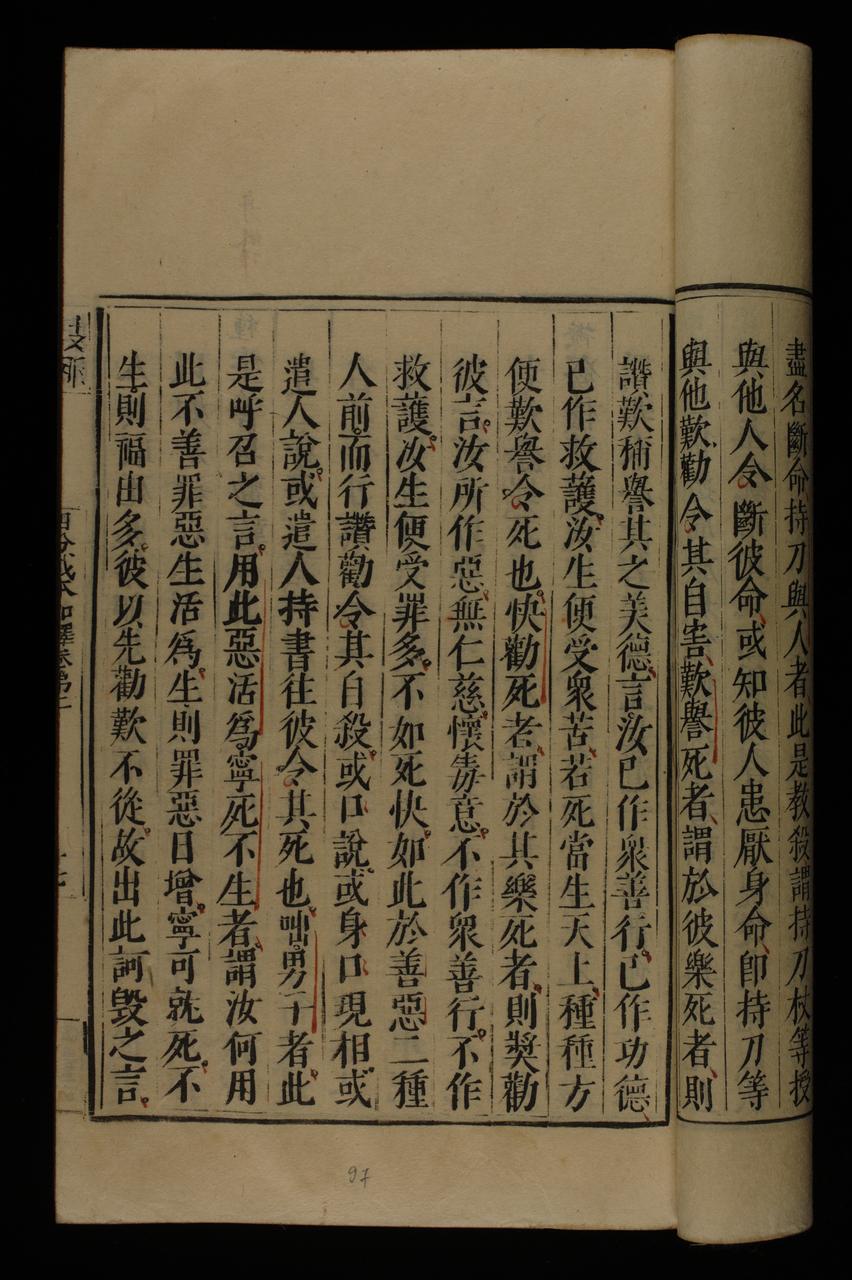 盡名斷命持刀與人者此是教殺謂持刀杖等授
與他人令斷彼命或知彼人患厭身命即持刀等
與他歎勸令其自害歎譽死者謂於彼樂死者則
讚歎稱譽其之美德言汝已作衆善行已作功德
已作救護汝生便受衆苦若死當生天上種種方
便歎譽令死也快勸死者謂於其樂死者則奬勸
彼言汝所作惡無仁慈懷毒意不作衆善行不作
救護汝生便受罪多不如死快如此於善惡二種
人前而行讚勸令其自殺或口說或身口現相或
遣人說或遣人持書往彼令其死也咄男子者此
是呼召之言用此惡活爲寧死不生者謂汝何用
此不善罪惡生活爲生則罪惡日增寧可就死不
生則福出多彼以先勸歎不從故出此訶毀之言
97